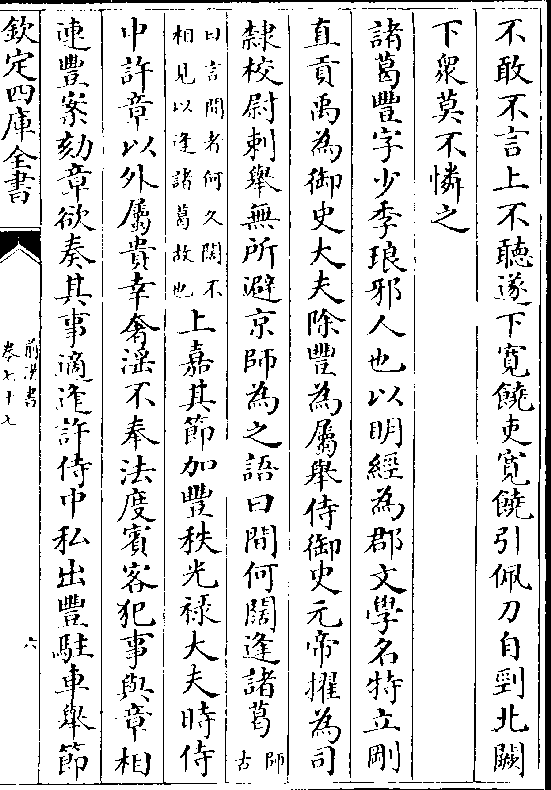 不敢不言上不聽遂下寛饒吏寛饒引佩刀自剄北闕
下衆莫不憐之
諸葛豐字少季琅邪人也以明經為郡文學名特立剛
直貢禹為御史大夫除豐為屬舉侍御史元帝擢為司
隸校尉刺舉無所避京師為之語曰間何闊逢諸葛師古
曰言間者何久闊不相見以逢諸葛故也上嘉其節加豐秩光祿大夫時侍
中許章以外屬貴幸奢淫不奉法度賓客犯事與章相
連豐案劾章欲奏其事適逢許侍中私出豐駐車舉節
欽定四庫全書
前漢書
卷七十七
六